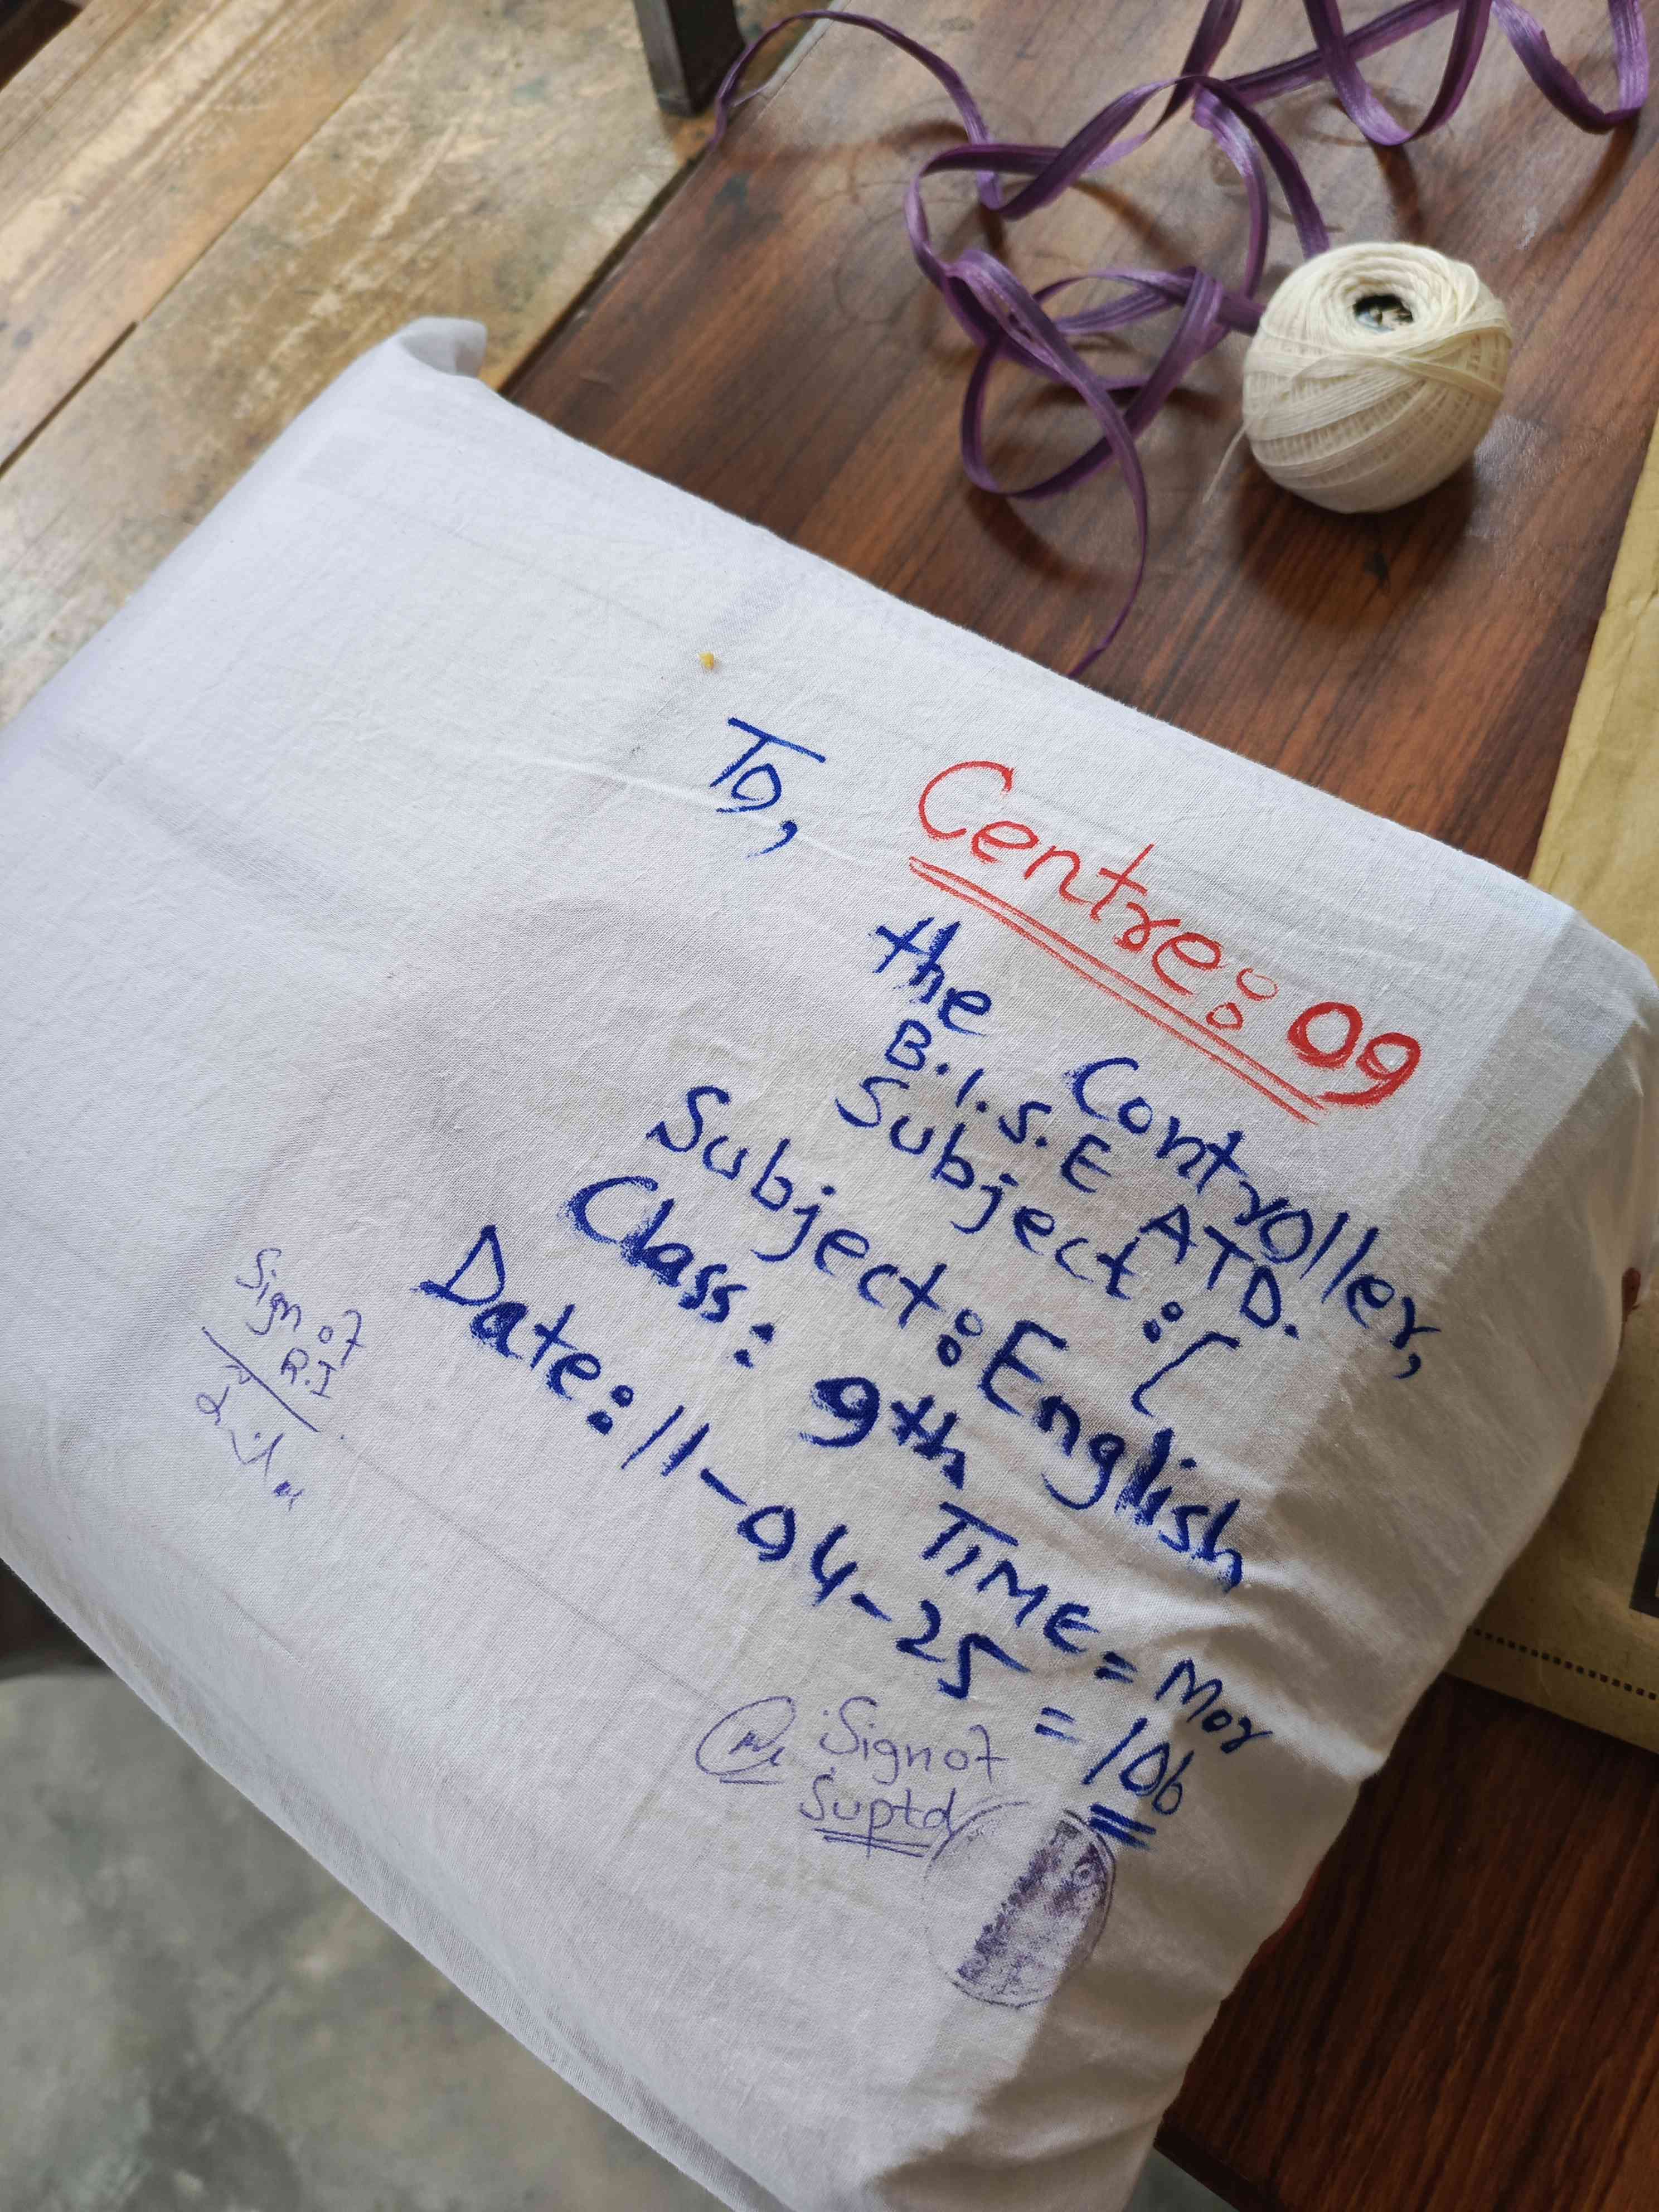 Centre: 09
To,
the Controller,
B.I.S.E ATD.
Subject:
Subject: English
Class: 9th TIME = Mor
Date: 11-04-25 =
Sign of
Suptd
Sign of
R.I